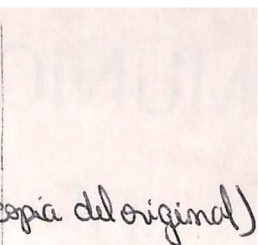 copia del original)